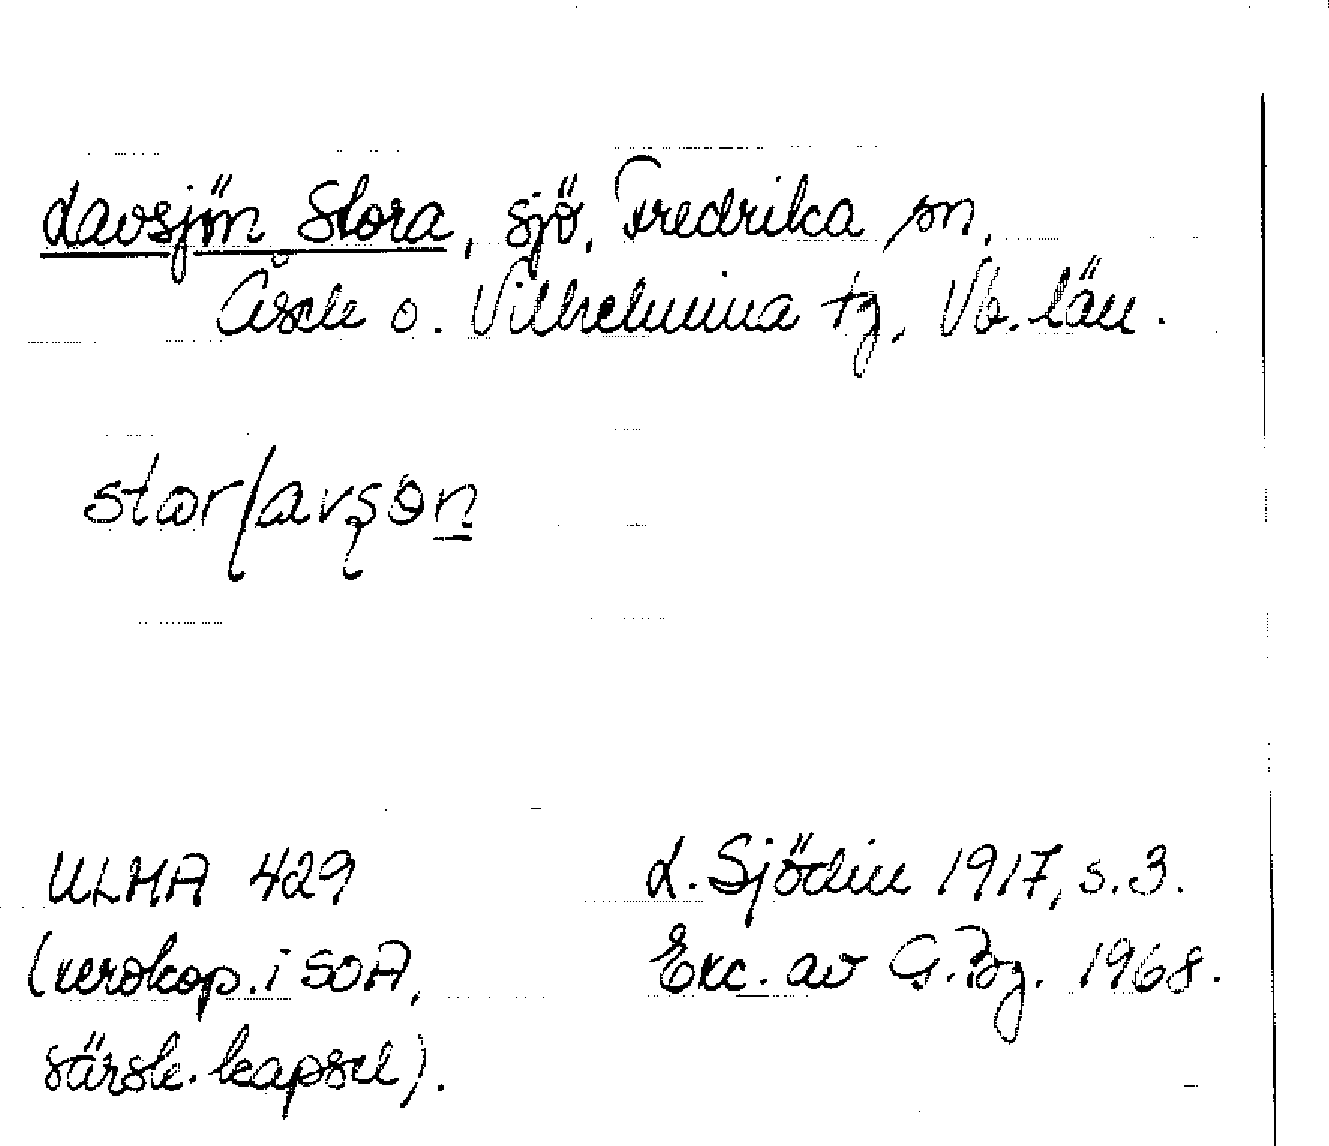 Lavsjön Stora, sjö, Fredrika sn,
Åsele o. Vilhelmina tg, Vb. län.
ULMA 429
(xerokop. i SOA,
särsk. kapsel).
L. Sjödin 1917, s. 3.
Exc. av G. Bg. 1968.